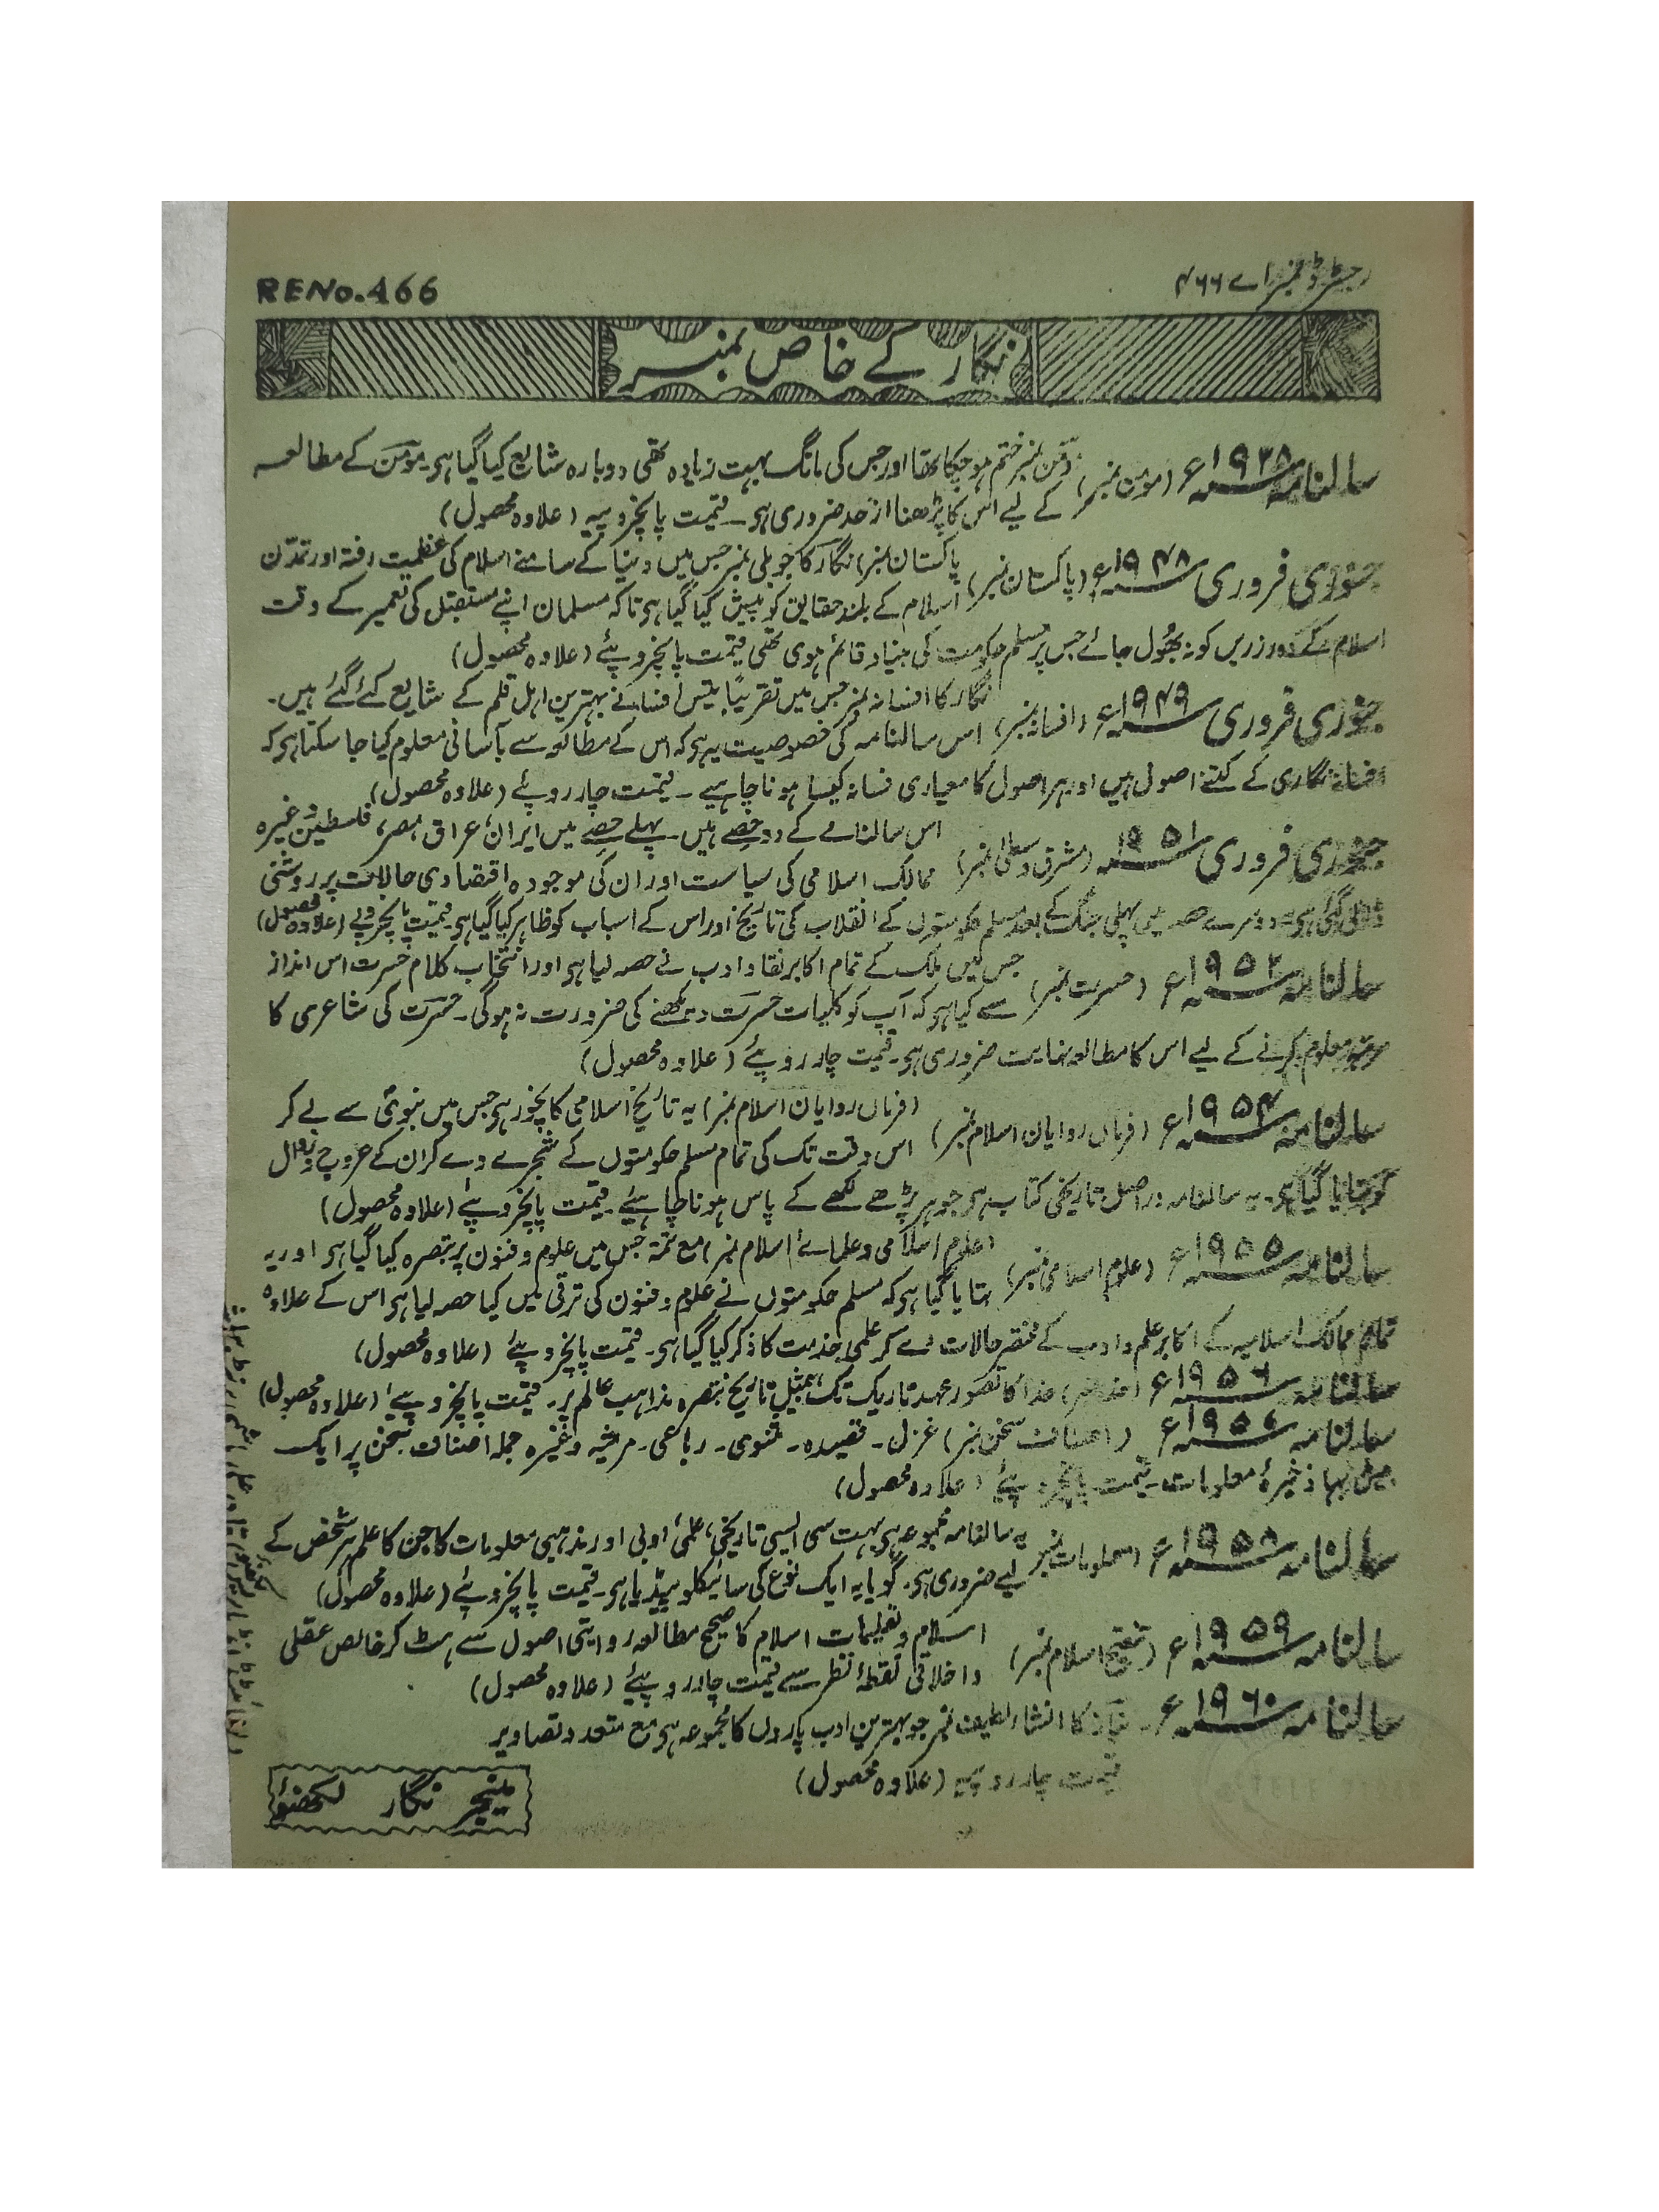 رجسٹرڈ نمبر اے ۴۶۶
RENo.466
نگار کے خاص نمبر
سالنامہ ۱۹۲۸ء (مومن نمبر) مومن نمبر ختم ہوچکا تھا اور جس کی مانگ بہت زیادہ تھی دوبارہ شایع کیا گیا ہو۔ مومن کے مطالعہ
کے لیے اس کا پڑھنا از حد ضروری ہو۔ قیمت پانچروپیہ (علاوہ محصول)
جنوری فروری ۱۹۴۸ء (پاکستان نمبر) پاکستان نمبر) نگار کا جوبلی نمبر جس میں دنیا کے سامنے اسلام کی عظمت رفتہ اور تمدّن
اسلام کے بلند حقایق کو پیش کیا گیا ہو تاکہ مسلمان اپنے مستقبل کی تعمیر کے وقت
اسلام کے دور زریں کو نہ بھُول جائے جس پر مسلم حکومت کی بنیاد قائم ہوی تھی قیمت پانچروپئے (علاوہ محصول)
جنوری فروری ۱۹۴۹ء (افسانہ نمبر) نگار کا افسانہ نمبر جس میں تقریباً بتیس افسانے بہترین اہل قلم کے شایع کئے گئے ہیں۔
اس سالنامہ کی خصوصیت یہ ہو کہ اس کے مطالعہ سے بآسانی معلوم کیا جا سکتا ہو کہ
افسانہ نگاری کے کتنے اصول ہیں اور ہر اصول کا معیاری فسانہ کیسا ہونا چاہیے۔ قیمت چار روپئے (علاوہ محصول)
جنوری فروری ۱۹۵۱ (مشرق وسطیٰ نمبر) اس سالنامے کے دو حصے ہیں۔ پہلے حصے میں ایران، عراق، مصر، فلسطین وغیرہ
ممالک اسلامی کی سیاست اور ان کی موجودہ اقتصادی حالات پر روشنی
ڈالی گئی ہو۔ دوسرے حصہ میں پہلی جنگ کے بعد مسلم حکومتوں کے انقلاب کی تاریخ اور اس کے اسباب کو ظاہر کیا گیا ہو۔ قیمت پانچروپے (علاوہ محصول)
سالنامہ ۱۹۵۲ء (حسرت نمبر) جس میں ملک کے تمام اکابر نقاد ادب نے حصہ لیا ہو اور انتخاب کلام حسرت اس انداز
سے کیا ہو کہ آپ کو کلیات حسرت دیکھنے کی ضرورت نہ ہوگی۔ حسرت کی شاعری کا
مرتبہ معلوم کرنے کے لیے اس کا مطالعہ نہایت ضروری ہو۔ قیمت چار روپئے (علاوہ محصول)
سالنامہ ۱۹۵۴ء (فرماں روایان اسلام نمبر) (فرماں روایان اسلام نمبر) یہ تاریخ اسلامی کا نچوڑ ہو جس میں نبویؐ سے لے کر
اس وقت تک کی تمام مسلم حکومتوں کے شجرے دے کر ان کے عروج و زوال
کو بتایا گیا ہو۔ یہ سالنامہ دراصل تاریخی کتاب ہو جو ہر پڑھے لکھے کے پاس ہونا چاہیئے۔ قیمت پانچروپئے (علاوہ محصول)
سالنامہ ۱۹۵۵ء (علوم اسلامی نمبر) (علوم اسلامی و علمائے اسلام نمبر) مع تتمہ جس میں علوم و فنون پر تبصرہ کیا گیا ہو اور یہ
بتایا گیا ہو کہ مسلم حکومتوں نے علوم و فنون کی ترقی میں کیا حصہ لیا ہو اس کے علاوہ
تمام ممالک اسلامیہ کے اکابر علم و ادب کے مختصر حالات دے کر علمی خدمت کا ذکر کیا گیا ہو۔ قیمت پانچروپئے (علاوہ محصول)
سالنامہ ۱۹۵۶ء (خدا نمبر) خدا کا تصور عہد تاریک تک، بمثیل تاریخ تبصرہ مذاہب عالم پر۔ قیمت پانچروپئے (علاوہ محصول)
سالنامہ ۱۹۵۷ء (اصناف سخن نمبر) غزل۔ قصیدہ۔ مثنوی۔ رباعی۔ مرثیہ وغیرہ جملہ اصناف سخن پر ایک
بیش بہا ذخیرۂ معلومات۔ قیمت پانچروپئے (علاوہ محصول)
سالنامہ ۱۹۵۸ء (معلومات نمبر) یہ سالنامہ مجموعہ ہو بہت سی ایسی تاریخی، علمی، ادبی اور مذہبی معلومات کا جن کا علم ہر شخص کے
لیے ضروری ہو۔ گویا یہ ایک نوع کی سائیکلوپیڈیا ہو۔ قیمت پانچروپئے (علاوہ محصول)
سالنامہ ۱۹۵۹ء (تنقیح اسلام نمبر) اسلام و تعلیمات اسلام کا صحیح مطالعہ روایتی اصول سے ہٹ کر خالص عقلی
و اخلاقی نقطۂ نظر سے قیمت چار روپیئے (علاوہ محصول)
سالنامہ ۱۹۶۰ء۔ نیاز کا انشاء لطیف نمبر جو بہترین ادب پاروں کا مجموعہ ہو مع متعدد تصاویر
قیمت چار روپیہ (علاوہ محصول)
منیجر نگار لکھنؤ